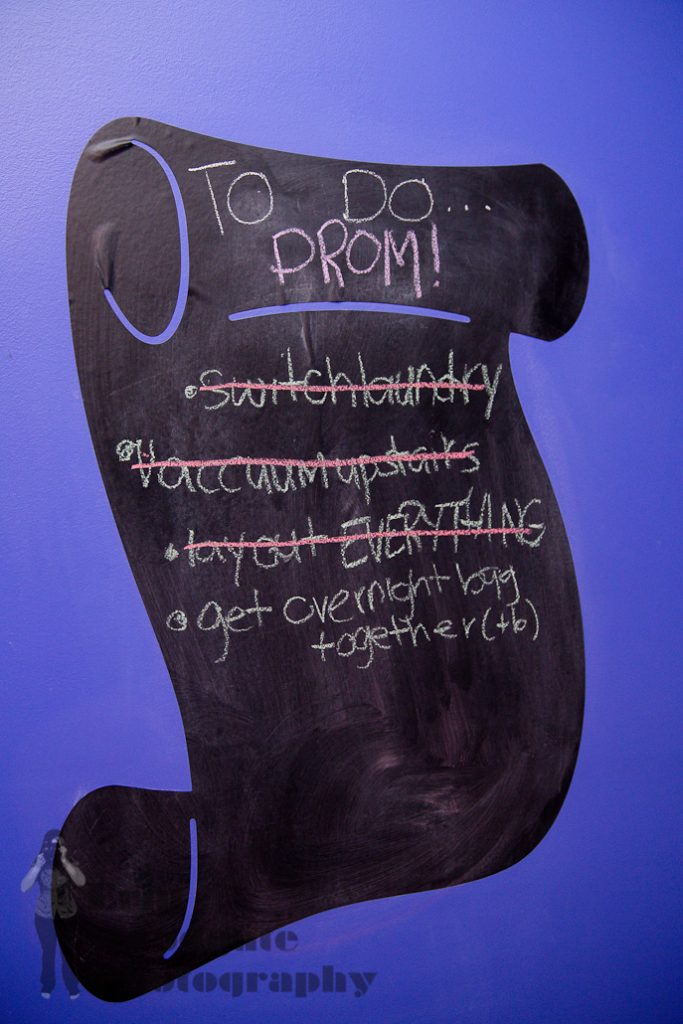 TO DO...
PROM!
• switch laundry
• vaccuum upstairs
• lay out EVERYTHING
• get overnight bag
together (tb)
Photography